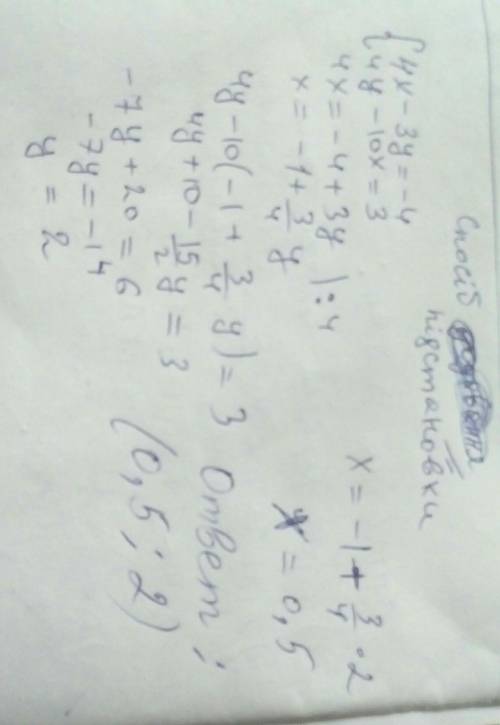 Спосіб
підстановки
{4x - 3y = -4
4y - 10x = 3
4x = -4 + 3y | : 4
x = -1 + 3/4 y
4y - 10(-1 + 3/4 y) = 3
4y + 10 - 15/2 y = 3
-7y + 20 = 6
-7y = -14
y = 2
x = -1 + 3/4 · 2
x = 0,5
Ответ:
(0,5; 2)